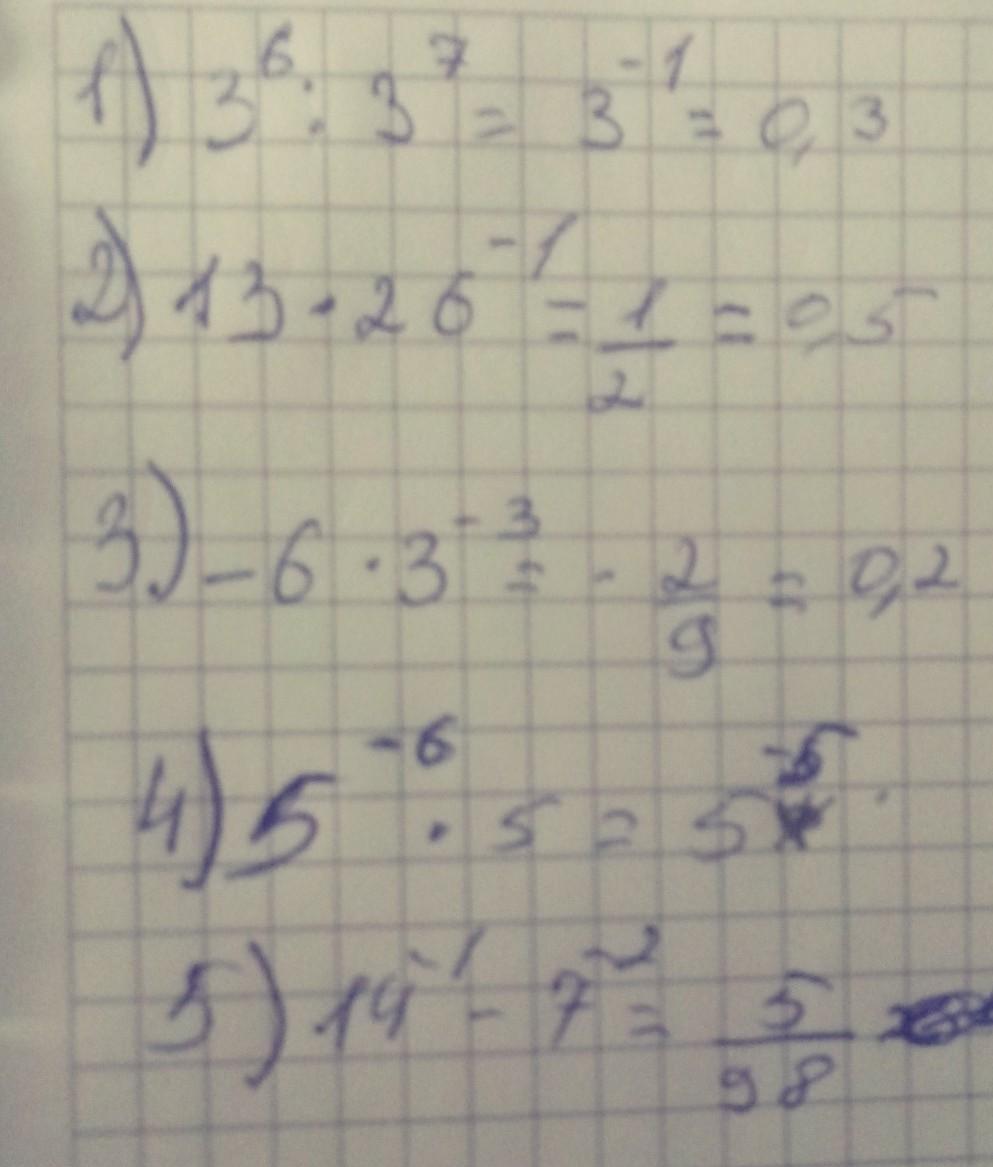 1) 3⁶ : 3⁷ = 3⁻¹ = 0,3
2) 13 · 26⁻¹ = 1/2 = 0,5
3) -6 · 3⁻³ = - 2/9 = 0,2
4) 5⁻⁶ · 5 = 5⁻⁵
5) 14⁻¹ - 7⁻² = 5/98